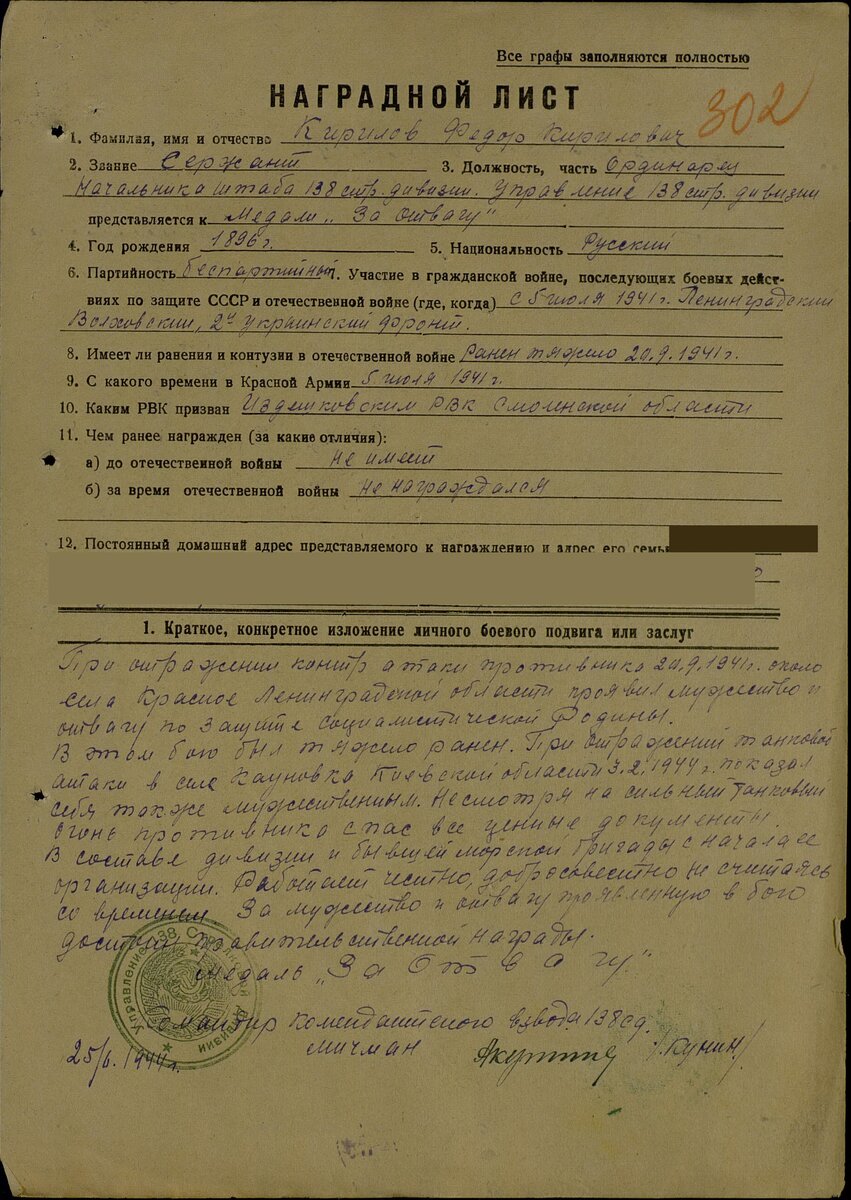 Все графы заполняются полностью
НАГРАДНОЙ ЛИСТ
302
1. Фамилия, имя и отчество Кирилов Федор Кирилович
2. Звание Сержант 3. Должность, часть Ординарец
Начальника штаба 138 стр. дивизии. Управление 138 стр. дивизии
представляется к Медали „За отвагу"
4. Год рождения 1896 г. 5. Национальность Русский
6. Партийность беспартийный 7. Участие в гражданской войне, последующих боевых дейст-
виях по защите СССР и отечественной войне (где, когда) с 5 июля 1941 г. Ленинградский
Волховский, 2й Украинский фронт.
8. Имеет ли ранения и контузии в отечественной войне Ранен тяжело 20.9.1941 г.
9. С какого времени в Красной Армии 5 июля 1941 г.
10. Каким РВК призван Издешковским РВК Смоленской области
11. Чем ранее награжден (за какие отличия):
а) до отечественной войны не имеет
б) за время отечественной войны не награждался
12. Постоянный домашний адрес представляемого к награждению и адрес его семьи
1. Краткое, конкретное изложение личного боевого подвига или заслуг
При отражении контр атаки противника 20.9.1941 г. около
села Красное Ленинградской области проявил мужество и
отвагу по защите социалистической Родины.
В этом бою был тяжело ранен. При отражений танковой
атаки в селе Киевской области 3.2.1944 г. показал
себя также мужественным. Несмотря на сильный танковый
огонь противника спас все ценные документы
В составе дивизии и бывшей морской бригады с начала ее
организации. Работает честно, добросовестно не считаясь
со временем За мужество и отвагу проявленную в бою
достоин правительственной награды.
Медаль „За Отвагу"
Командир комендантского взвода 138 сд.
мичман /Кунин/
25/6. 1944 г.
Управление 138 Стрелковой дивизии